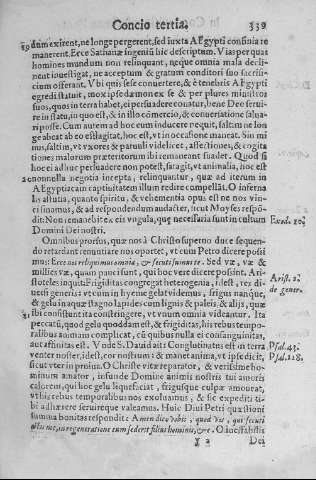 Concio tertia. 339
dum exirent, ne longe pergerent, sed iuxta AEgypti confinia re
manerent. Ecce Sathanæ ingeniũ hic descriptum. Vias per quas
homines mundum non relinquant, neque omnia mala decli-
nent inuestigat, ne acceptum & gratum conditori suo sacrifi-
cium offerant. Vbi quis sese conuertere, & è tenebris AEgypti
egredi statuit, mox ipse dæmon ex se & per plures ministros
suos, quos in terra habet, ei persuadere conatur, bene Deo serui-
re in statu, in quo est, & in illo comercio, & conuersatione salua-
ri posse. Cum autem ad hoc eum inducere nequit, saltim ne lon
ge abeat ab eo estlagitat, hoc est, vt in occasione maneat. Sin mi
nus, saltim, vt vxores & paruuli videlicet, affectiones, & cogita
tiones malorum præteritorum ibi remaneant suadet. Quod si
hoc ei adhuc persuadere non potest, sit agit, vt animalia, hoc est
nonnulla negotia incepta, relinquantur, quæ ad iterum in
AEgyptiacam captiuitatem illum redire compellãt. O inferna
lis astutia, quanto spiritu, & vehementia opus est ne nos vin-
ci sinamus, & ad respondendum audacter, sicut Moyses respõ-
dit: Non remanebit ex eis vngula, quę necessaria sunt in cultum Exod. 10.
Domini Dei nostri.
Omnibus prorsus, quæ nos à Christo superno duce sequen-
do retardant renuntiare nos oportet, vt cum Petro dicere possi
mus: Ecce nos reliquimus omnia, & secuti sumus te. Sed væ, væ &
millies væ, quam pauci sunt, qui hoc vere dicere possint. Ari-
stoteles inquit: Frigiditas congregat heterogenia, id est, res di- Arist. 2.
uersi generis: vt cum in hyeme gelat videmus, frigus nanque, de gener.
& gelu in aquæ stagno lapides cum lignis & paleis, & alijs, quæ
ibi consistunt ita constringere, vt vnum omnia videantur. Ita
peccatũ, quod gelu quoddam est, & frigiditas, his rebus tempo-
ralibus animam complicat, cũ quibus nulla ei consanguinitas,
aut affinitas est. Vnde S. Dauid ait: Conglutinatus est in terra Psal. 43.
venter noster, id est, cor nostrum: & manet anima, vt ipse dicit, Psal. 118.
sicut vter in pruina. O Christe vitæ reparator, & verissime ho-
minum amator, infunde Domine animis nostris tui amoris
calorem, qui hoc gelu liquefaciat, frigusque culpæ amoueat,
vt his rebus temporalibus nos exoluamus, & sic expediti ti-
bi adhærere seruireque valeamus. Huic Diui Petri quæstioni
summa bonitas respondit: Amen dico vobis, quod vos, qui secuti
estis me, in regeneratione cum sederit filius hominis, &c. O inestabilis
Y 2 Dei